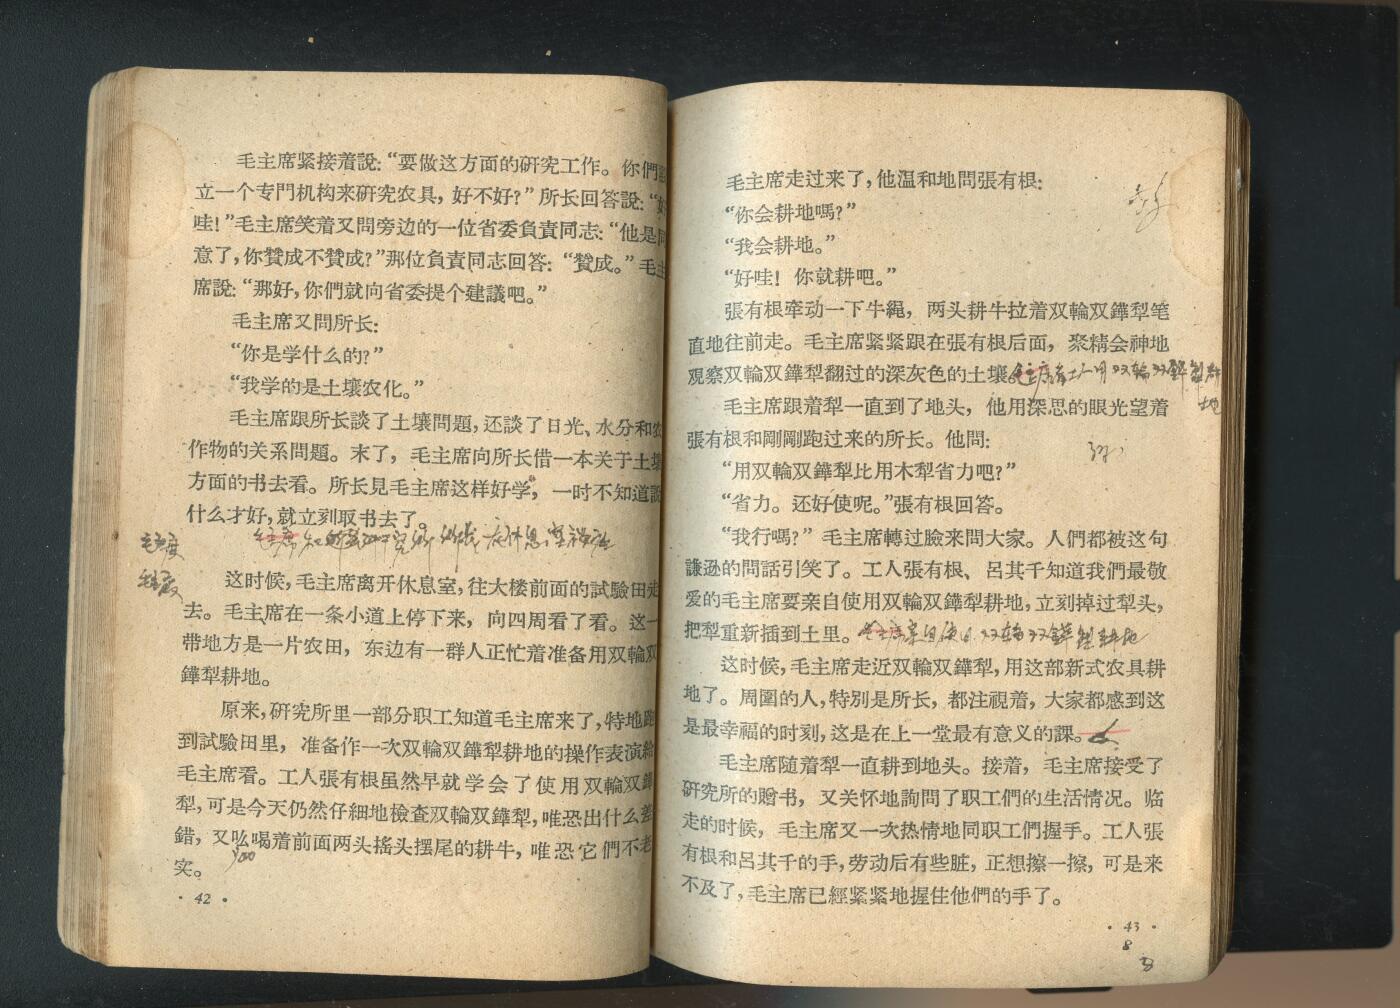 毛主席紧接着說：“要做这方面的研究工作。你們
立一个专門机构来研究农具，好不好？”所长回答說：“好
哇！”毛主席笑着又問旁边的一位省委負責同志：“他是同
意了，你贊成不贊成？”那位負責同志回答：“贊成。”毛主
席說：“那好，你們就向省委提个建議吧。”
毛主席又問所长：
“你是学什么的？”
“我学的是土壤农化。”
毛主席跟所长談了土壤問題，还談了日光、水分和农
作物的关系問題。末了，毛主席向所长借一本关于土壤
方面的书去看。所长見毛主席这样好学，一时不知道說
什么才好，就立刻取书去了。
这时候，毛主席离开休息室，往大楼前面的試驗田走
去。毛主席在一条小道上停下来，向四周看了看。这一
带地方是一片农田，东边有一群人正忙着准备用双輪双
鏵犁耕地。
原来，研究所里一部分职工知道毛主席来了，特地跑
到試驗田里，准备作一次双輪双鏵犁耕地的操作表演給
毛主席看。工人張有根虽然早就学会了使用双輪双鏵
犁，可是今天仍然仔細地檢查双輪双鏵犁，唯恐出什么差
錯，又吆喝着前面两头搖头摆尾的耕牛，唯恐它們不老
实。
· 42 ·
毛主席走过来了，他温和地問張有根：
“你会耕地嗎？”
“我会耕地。”
“好哇！你就耕吧。”
張有根牵动一下牛繩，两头耕牛拉着双輪双鏵犁笔
直地往前走。毛主席紧紧跟在張有根后面，聚精会神地
观察双輪双鏵犁翻过的深灰色的土壤。
毛主席跟着犁一直到了地头，他用深思的眼光望着
張有根和剛剛跑过来的所长。他問：
“用双輪双鏵犁比用木犁省力吧？”
“省力。还好使呢。”張有根回答。
“我行嗎？”毛主席轉过臉来問大家。人們都被这句
謙逊的問話引笑了。工人張有根、呂其千知道我們最敬
爱的毛主席要亲自使用双輪双鏵犁耕地，立刻掉过犁头，
把犁重新插到土里。毛主席亲自使用双輪双鏵犁耕地
这时候，毛主席走近双輪双鏵犁，用这部新式农具耕
地了。周圍的人，特别是所长，都注視着，大家都感到这
是最幸福的时刻，这是在上一堂最有意义的課。
毛主席随着犁一直耕到地头。接着，毛主席接受了
研究所的贈书，又关怀地詢問了职工們的生活情况。临
走的时候，毛主席又一次热情地同职工們握手。工人張
有根和呂其千的手，劳动后有些脏，正想擦一擦，可是来
不及了，毛主席已經紧紧地握住他們的手了。
· 43 ·
8